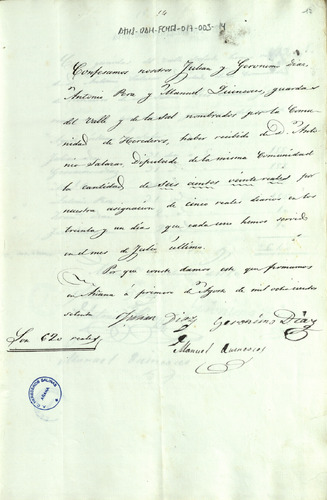 14
12
AMS-UDH-FCHSA-017-003-4
Confesamos nosotros Julian y Geronimo Diaz,
Antonio Pera y Manuel Quincoces, guardas
del Valle y de la Sal nombrados por la Comu-
nidad de Herederos, haber recibido de D. Anto-
nio Salazar Diputado de la misma Comunidad
la cantidad de seis cientos veinte reales por
nuestra asignacion de cinco reales diarios en los
treinta y un dias que cada uno hemos servido
en el mes de Julio último.
Por que conste damos este que firmamos
en Añana á primero de Agosto de mil ocho cientos
setenta
Julian Diaz Geronimo Diaz
Son 620 reales
Manuel Quincoces
AÑANA